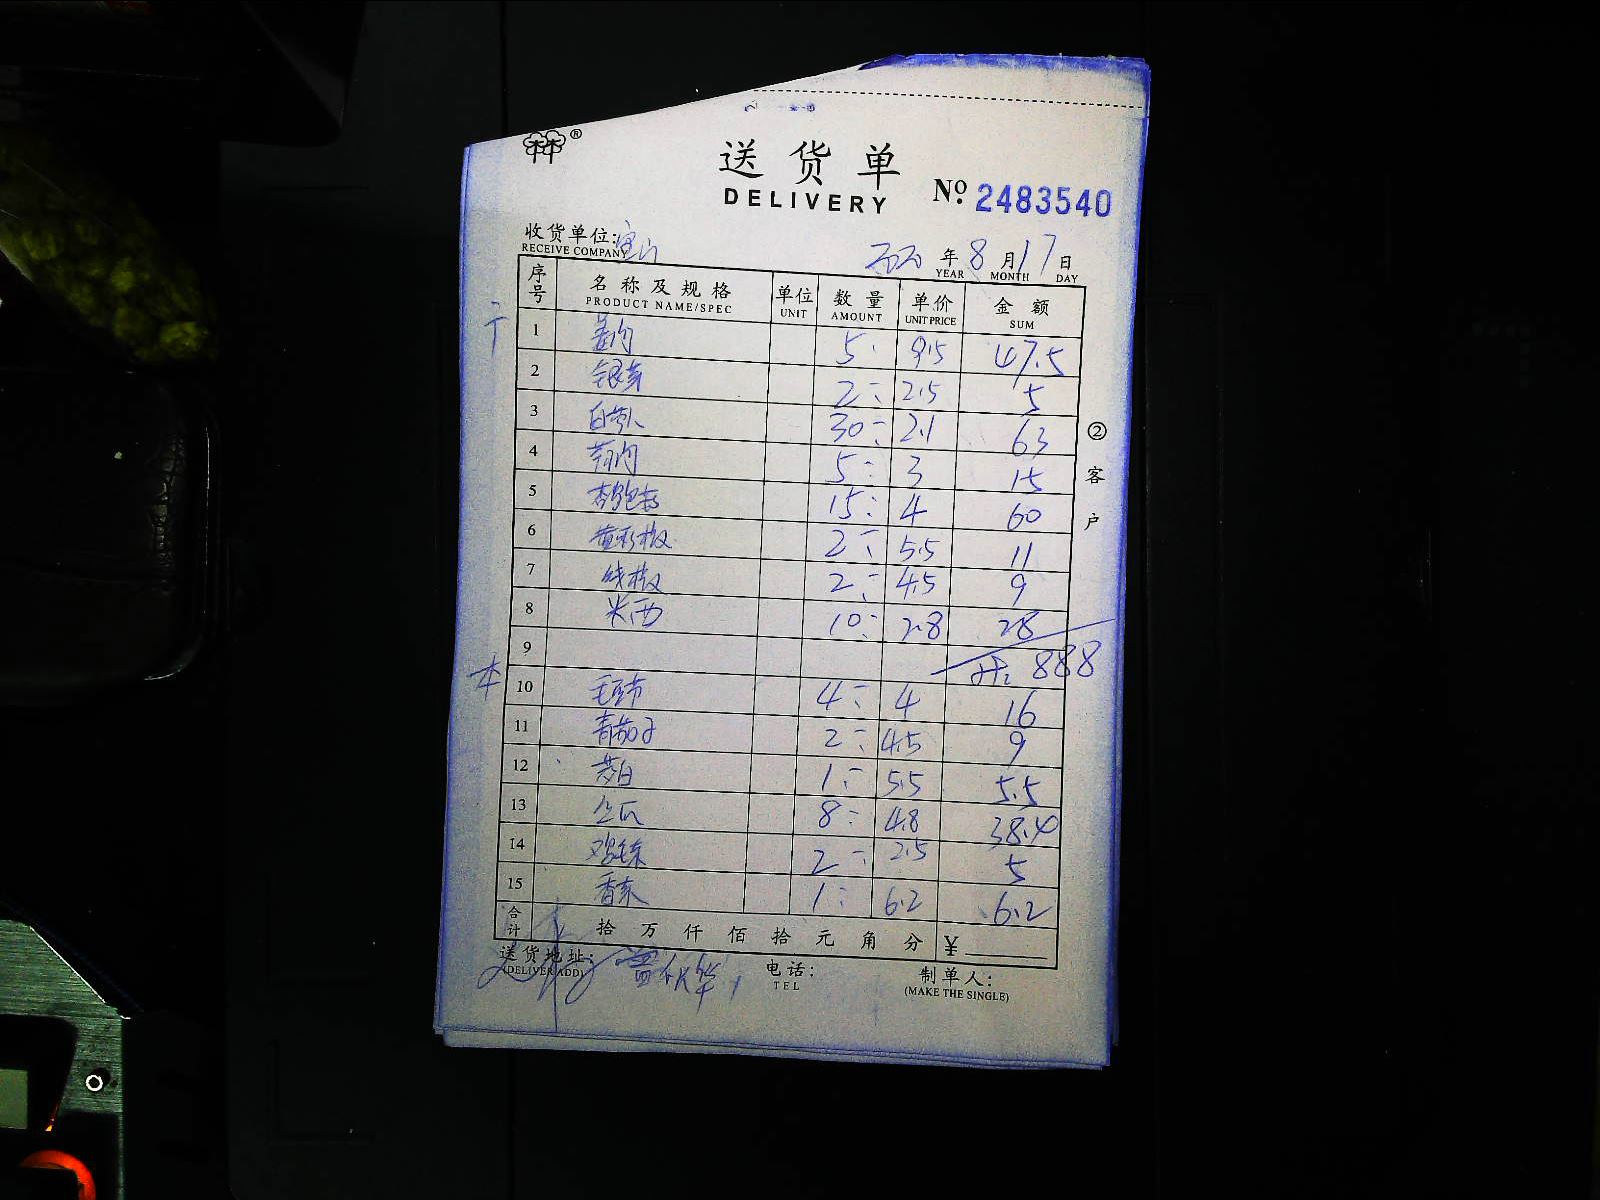 ®
送货单
DELIVERY
No. 2483540
收货单位:
RECEIVE COMPANY
年 8 月 17 日
YEAR MONTH DAY
序号 名称及规格 单位 数量 单价 金额
PRODUCT NAME/SPEC UNIT AMOUNT UNIT PRICE SUM
1 姜肉 5 9.5 47.5
2 银芽 2 2.5 5
3 白萝卜 30 2.1 63
4 5 3 15
5 杏鲍菇 15 4 60
6 黄彩椒 2 5.5 11
7 线椒 2 4.5 9
8 米西 10 2.8 28
9 888
本
10 毛豆节 4 4 16
11 青茄子 2 4.5 9
12 茭白 1 5.5 5.5
13 8 4.8 38.40
14 2 2.5 5
15 香菜 1 6.2 6.2
合计 拾 万 仟 佰 拾 元 角 分 ¥
送货地址: 电话: 制单人:
(DELIVER ADD) TEL (MAKE THE SINGLE)
②客户